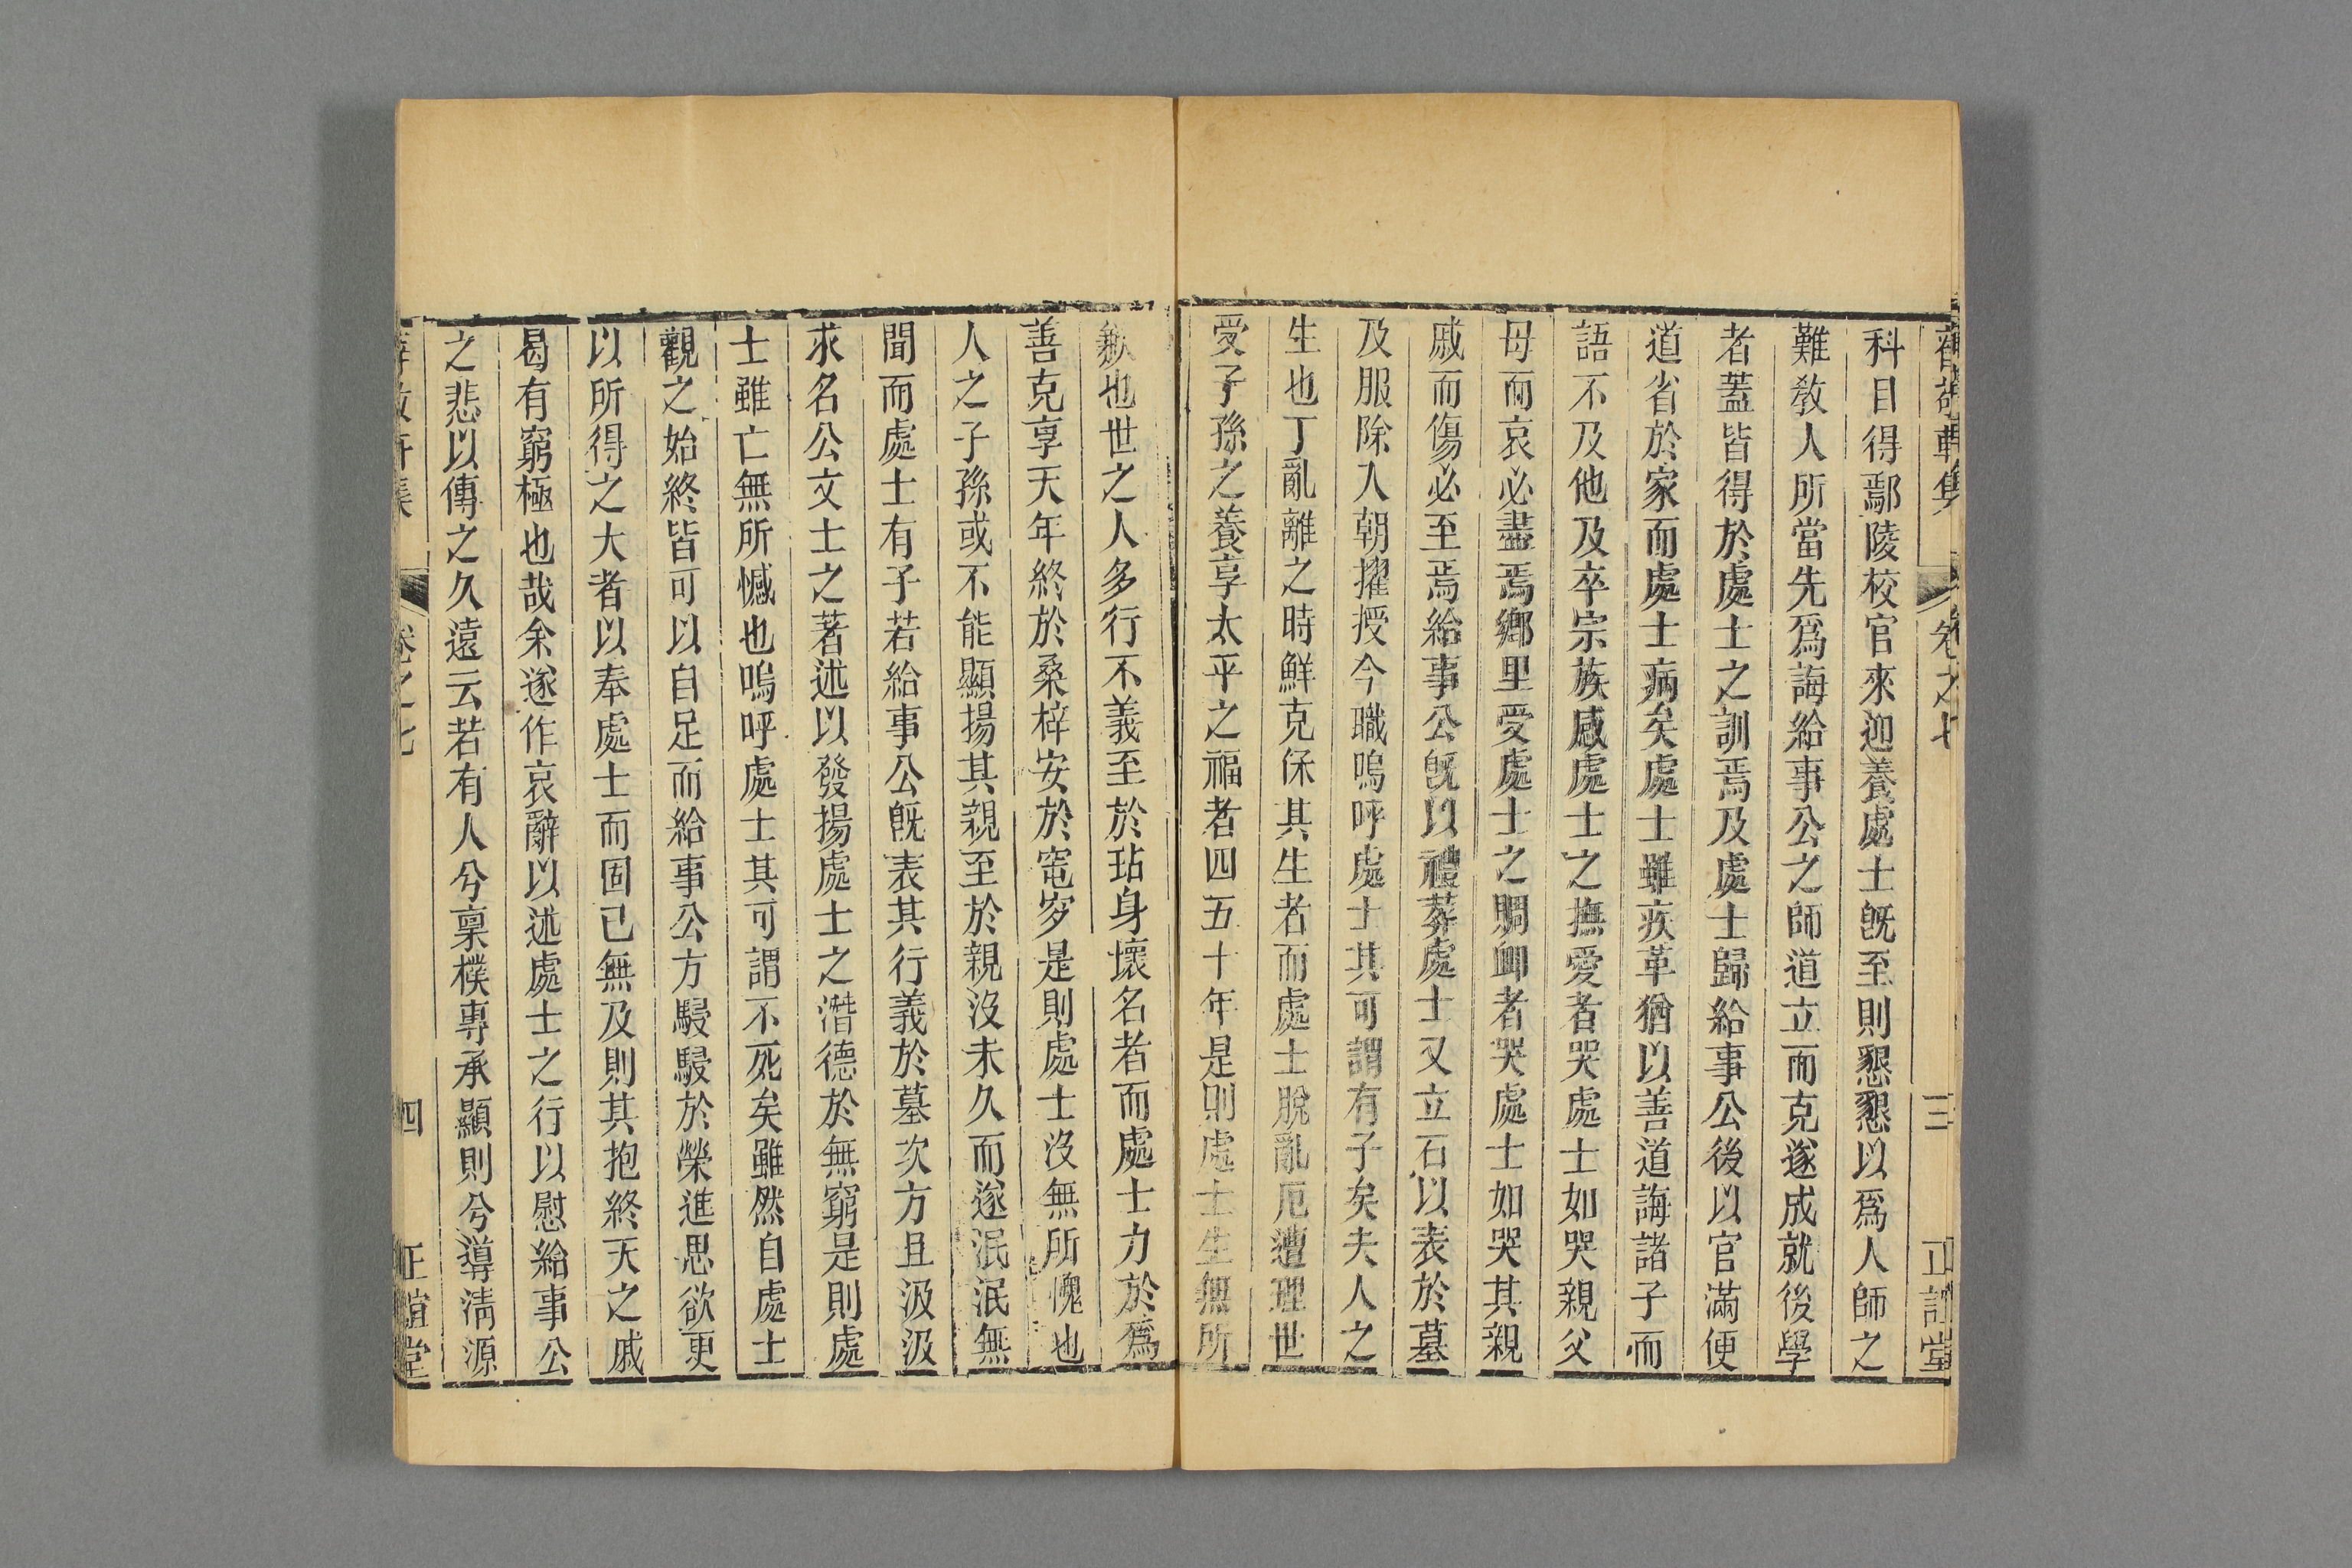 薛敬軒集 卷之七 三 正誼堂
科目得鄢陵校官來迎養處士旣至則懇懇以爲人師之
難敎人所當先爲誨給事公之師道立而克遂成就後學
者蓋皆得於處士之訓焉及處士歸給事公後以官滿便
道省於家而處士病矣處士雖疾革猶以善道誨諸子而
語不及他及卒宗族感處士之撫愛者哭處士如哭親父
母而哀必盡焉鄉里受處士之賙卹者哭處士如哭其親
戚而傷必至焉給事公旣以禮葬處士又立石以表於墓
及服除入朝擢授今職嗚呼處士其可謂有子矣夫人之
生也丁亂離之時鮮克保其生者而處士脫亂厄遭理世
受子孫之養享太平之福者四五十年是則處士生無所
歉也世之人多行不義至於玷身壞名者而處士力於爲
善克享天年終於桑梓安於窀穸是則處士沒無所愧也
人之子孫或不能顯揚其親至於親沒未久而遂泯泯無
聞而處士有子若給事公旣表其行義於墓次方且汲汲
求名公文士之著述以發揚處士之潛德於無窮是則處
士雖亡無所憾也嗚呼處士其可謂不死矣雖然自處士
觀之始終皆可以自足而給事公方駸駸於榮進思欲更
以所得之大者以奉處士而固已無及則其抱終天之戚
曷有窮極也哉余遂作哀辭以述處士之行以慰給事公
之悲以傳之久遠云若有人兮稟樸專承顯則兮導淸源
薛敬軒集 卷之七 四 正誼堂